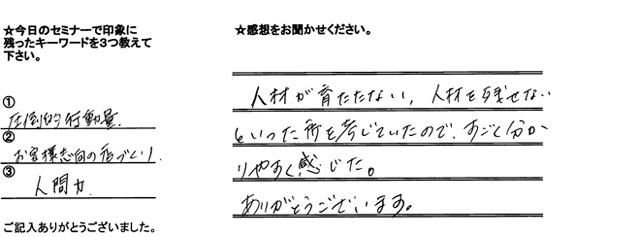 ☆今日のセミナーで印象に
残ったキーワードを3つ教えて
下さい。
①
圧倒的行動量
②
お客様志向の店づくり
③
人間力
ご記入ありがとうございました。
☆感想をお聞かせください。
人材が育たない, 人材を残せない
といった所を考じていたので、すごく分か
りやすく感じた。
ありがとうございます。